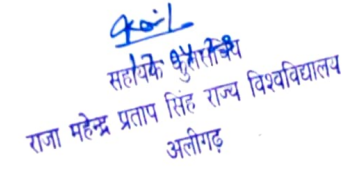 सहायक कुलसचिव
राजा महेन्द्र प्रताप सिंह राज्य विश्वविद्यालय
अलीगढ़